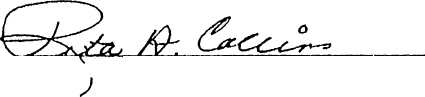 Rita A. Collins